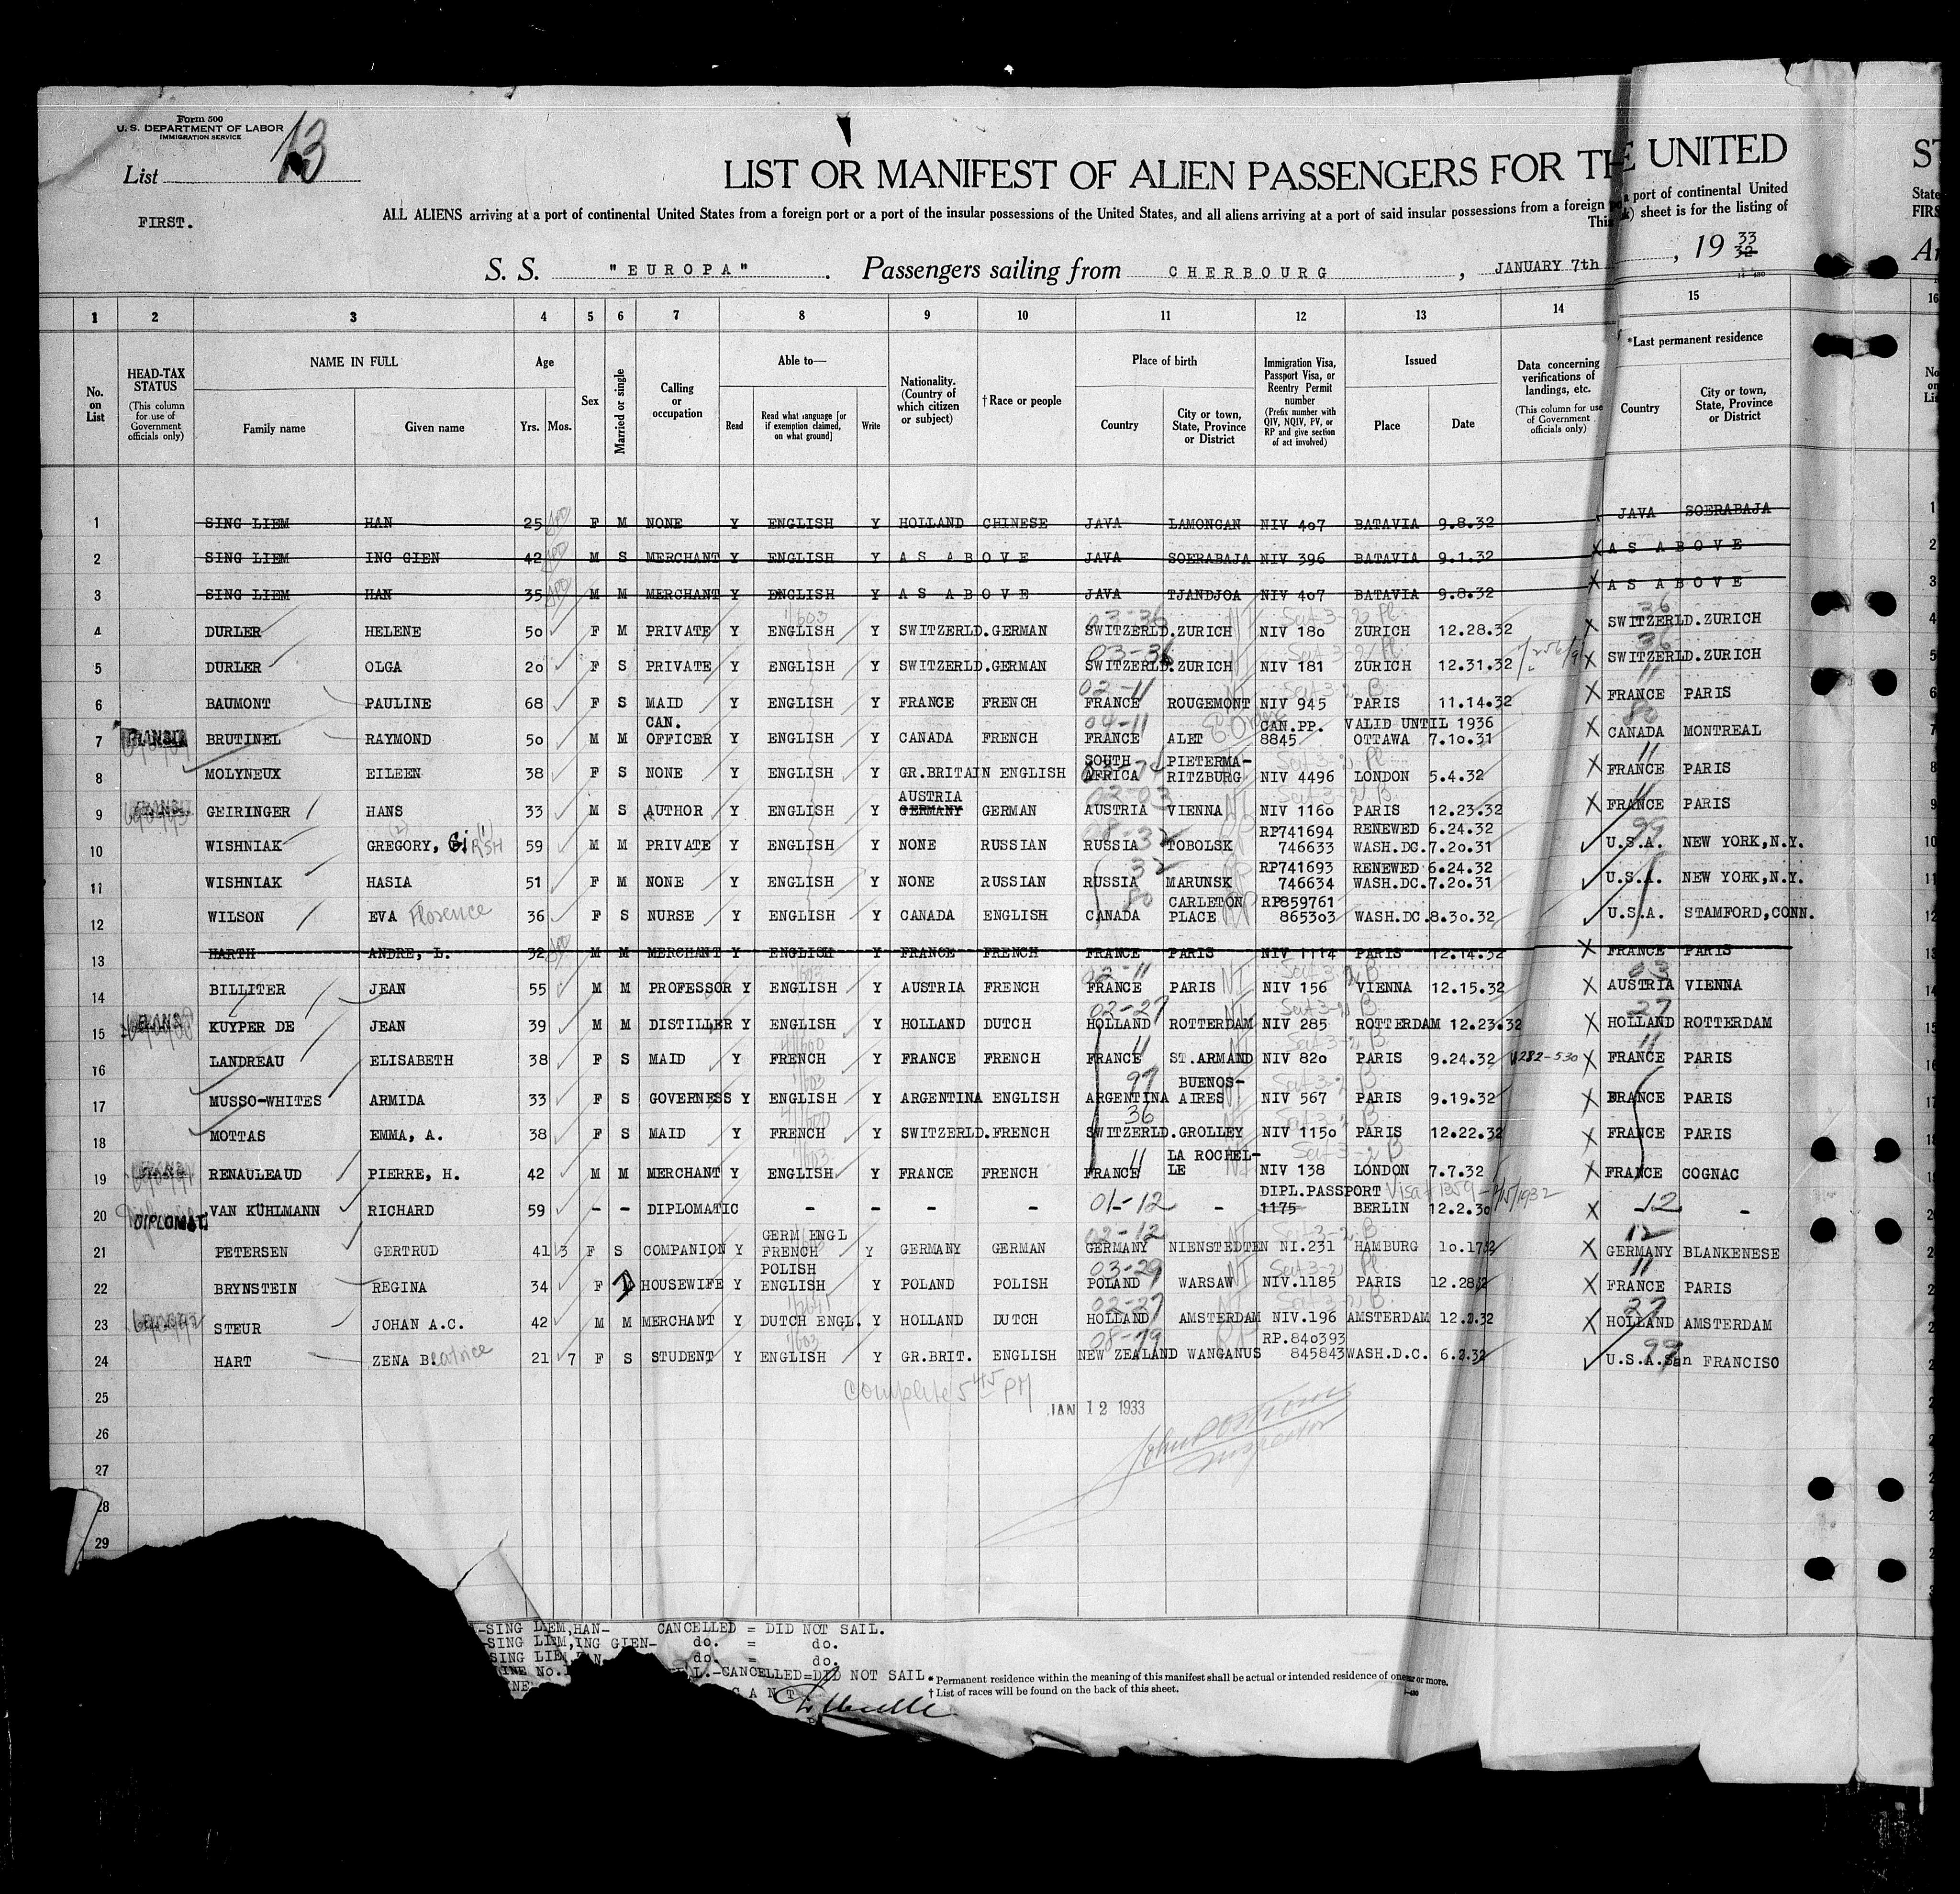 Form 500
U. S. DEPARTMENT OF LABOR
IMMIGRATION SERVICE
List 13
FIRST.
LIST OR MANIFEST OF ALIEN PASSENGERS FOR THE UNITED
ALL ALIENS arriving at a port of continental United States from a foreign port or a port of the insular possessions of the United States, and all aliens arriving at a port of said insular possessions from a foreign port of continental United
This sheet is for the listing of
S. S. "EUROPA". Passengers sailing from CHERBOURG, JANUARY 7th, 19 33 32
1 2 3 4 5 6 7 8 9 10 11 12 13 14 15 16
No. on List
HEAD-TAX STATUS (This column for use of Government officials only)
NAME IN FULL Family name Given name
Age Yrs. Mos.
Sex
Married or single
Calling or occupation
Able to— Read Read what language [or if exemption claimed, on what ground] Write
Nationality. (Country of which citizen or subject)
†Race or people
Place of birth Country City or town, State, Province or District
Immigration Visa, Passport Visa, or Reentry Permit number (Prefix number with QIV, NQIV, PV, or RP and give section of act involved)
Issued Place Date
Data concerning verifications of landings, etc. (This column for use of Government officials only)
*Last permanent residence Country City or town, State, Province or District
1 SING LIEM HAN 25 F M NONE Y ENGLISH Y HOLLAND CHINESE JAVA LAMONGAN NIV 407 BATAVIA 9.8.32 JAVA SOERABAJA
2 SING LIEM ING GIEN 42 M S MERCHANT Y ENGLISH Y AS ABOVE JAVA SOERABAJA NIV 396 BATAVIA 9.1.32 X AS ABOVE
3 SING LIEM HAN 35 M M MERCHANT Y ENGLISH Y AS ABOVE JAVA TJANDJOA NIV 407 BATAVIA 9.8.32 X AS ABOVE
4 DURLER HELENE 50 F M PRIVATE Y ENGLISH Y SWITZERLD. GERMAN SWITZERLD. ZURICH NIV 180 ZURICH 12.28.32 X SWITZERLD. ZURICH
5 DURLER OLGA 20 F S PRIVATE Y ENGLISH Y SWITZERLD. GERMAN SWITZERLD. ZURICH NIV 181 ZURICH 12.31.32 X SWITZERLD. ZURICH
6 BAUMONT PAULINE 68 F S MAID Y ENGLISH Y FRANCE FRENCH 02-11 FRANCE ROUGEMONT NIV 945 PARIS 11.14.32 X FRANCE PARIS
7 BRUTINEL RAYMOND 50 M M CAN. OFFICER Y ENGLISH Y CANADA FRENCH 04-11 FRANCE ALET CAN.PP. 8845 VALID UNTIL 1936 OTTAWA 7.10.31 X CANADA MONTREAL
8 MOLYNEUX EILEEN 38 F S NONE Y ENGLISH Y GR.BRITAIN ENGLISH SOUTH AFRICA PIETERMA-RITZBURG NIV 4496 LONDON 5.4.32 X FRANCE PARIS
9 GEIRINGER HANS 33 M S AUTHOR Y ENGLISH Y AUSTRIA GERMANY GERMAN 02-03 AUSTRIA VIENNA NIV 1160 PARIS 12.23.32 X FRANCE PARIS
10 WISHNIAK GREGORY, GIRSH 59 M M PRIVATE Y ENGLISH Y NONE RUSSIAN 08-32 RUSSIA TOBOLSK RP741694 746633 RENEWED 6.24.32 WASH.DC.7.20.31 99 U.S.A. NEW YORK,N.Y.
11 WISHNIAK HASIA 51 F M NONE Y ENGLISH Y NONE RUSSIAN 32 RUSSIA MARUNSK RP741693 746634 RENEWED 6.24.32 WASH.DC.7.20.31 U.S.A. NEW YORK,N.Y.
12 WILSON EVA Florence 36 F S NURSE Y ENGLISH Y CANADA ENGLISH 80 CANADA CARLETON PLACE RP859761 865303 WASH.DC.8.30.32 U.S.A. STAMFORD,CONN.
13 HARTH ANDRE, L. 32 M M MERCHANT Y ENGLISH Y FRANCE FRENCH FRANCE PARIS NIV 1114 PARIS 12.14.32 X FRANCE PARIS
14 BILLITER JEAN 55 M M PROFESSOR Y ENGLISH Y AUSTRIA FRENCH 02-11 FRANCE PARIS NIV 156 VIENNA 12.15.32 X 03 AUSTRIA VIENNA
15 KUYPER DE JEAN 39 M M DISTILLER Y ENGLISH Y HOLLAND DUTCH 02-27 HOLLAND ROTTERDAM NIV 285 ROTTERDAM 12.23.32 X 27 HOLLAND ROTTERDAM
16 LANDREAU ELISABETH 38 F S MAID Y FRENCH Y FRANCE FRENCH 11 FRANCE ST.ARMAND NIV 820 PARIS 9.24.32 X 11 FRANCE PARIS
17 MUSSO-WHITES ARMIDA 33 F S GOVERNESS Y ENGLISH Y ARGENTINA ENGLISH 97 ARGENTINA BUENOS-AIRES NIV 567 PARIS 9.19.32 X FRANCE PARIS
18 MOTTAS EMMA, A. 38 F S MAID Y FRENCH Y SWITZERLD. FRENCH 36 SWITZERLD. GROLLEY NIV 1150 PARIS 12.22.32 X FRANCE PARIS
19 RENAULEAUD PIERRE, H. 42 M M MERCHANT Y ENGLISH Y FRANCE FRENCH 11 FRANCE LA ROCHEL-LE NIV 138 LONDON 7.7.32 X FRANCE COGNAC
20 DIPLOMAT. VAN KÜHLMANN RICHARD 59 - - DIPLOMATIC - - - - 01-12 - DIPL.PASSPORT 1175 BERLIN 12.2.30 X 12 -
21 PETERSEN GERTRUD 41 3 F S COMPANION Y GERM ENGL FRENCH Y GERMANY GERMAN 02-12 GERMANY NIENSTEDTEN NI.231 HAMBURG 10.1732 X 12 GERMANY BLANKENESE
22 BRYNSTEIN REGINA 34 F HOUSEWIFE Y POLISH ENGLISH Y POLAND POLISH 03-29 POLAND WARSAW NIV.1185 PARIS 12.2832 X 11 FRANCE PARIS
23 STEUR JOHAN A.C. 42 M M MERCHANT Y DUTCH ENGL. Y HOLLAND DUTCH 02-27 HOLLAND AMSTERDAM NIV.196 AMSTERDAM 12.2.32 X 27 HOLLAND AMSTERDAM
24 HART ZENA Beatrice 21 7 F S STUDENT Y ENGLISH Y GR.BRIT. ENGLISH NEW ZEALAND WANGANUS RP.840393 845843 WASH.D.C. 6.2.32 99 U.S.A. San FRANCISO
25 Complete 5 45 PM JAN 12 1933
26 Inspector
27
28
29
SING LIEM,HAN- CANCELLED = DID NOT SAIL.
SING LIEM,ING GIEN- do. = do.
SING LIEM do. = do.
L.-CANCELLED=DID NOT SAIL
* Permanent residence within the meaning of this manifest shall be actual or intended residence of one year or more.
† List of races will be found on the back of this sheet.